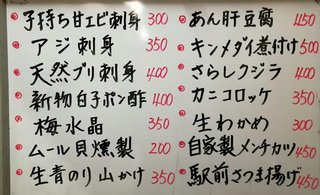 子持ち甘エビ刺身 300
アジ刺身 350
天然ブリ刺身 400
新物白子ポン酢 400
梅水晶 350
ムール貝燻製 200
生青のり山かけ 350
あん肝豆腐 450
キンメダイ煮付け 500
さらしクジラ 400
カニコロッケ 350
生わかめ 300
自家製メンチカツ 450
駅前さつま揚げ 450